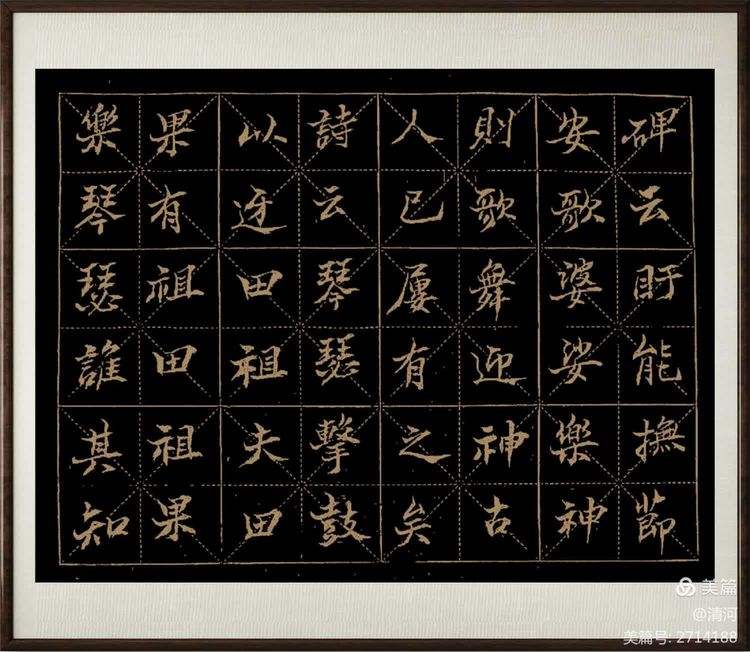 碑云盱能撫節
安歌婆娑樂神
則歌舞迎神古
人已屢有之矣
詩云琴瑟擊鼓
以迓田祖夫田
果有祖田祖果
樂琴瑟誰其知
美篇
@清河
美篇号: 2714188